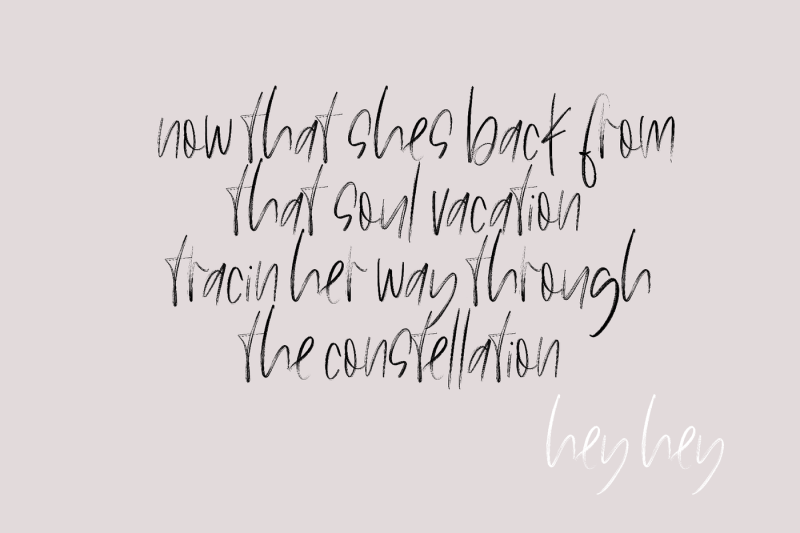 now that shes back from
that soul vacation
tracin her way through
the constellation
hey hey